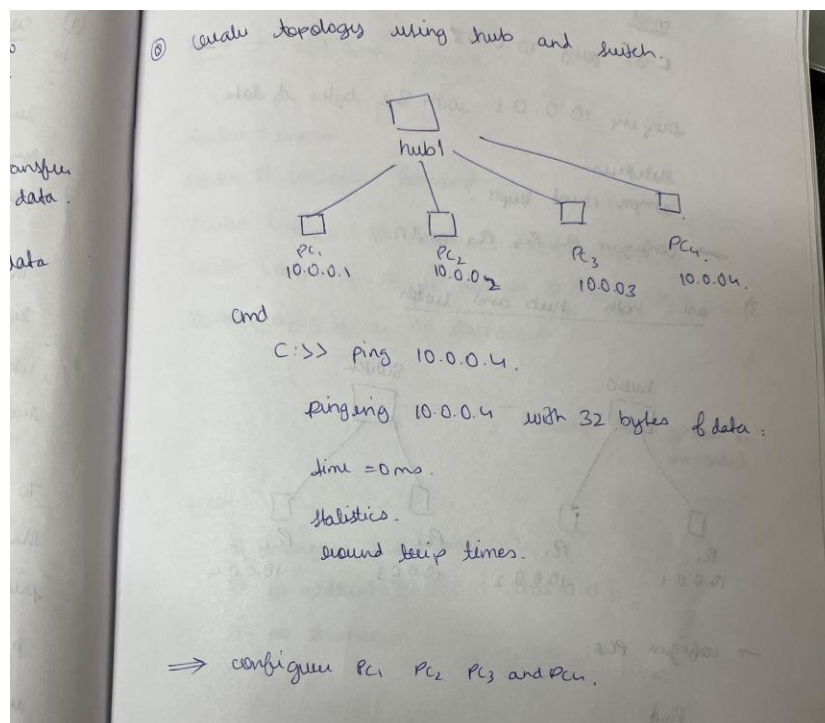 ansfer
data.
data
⓪ create topology using hub and switch.
hub1
PC1 PC2 PC3 PC4.
10.0.0.1 10.0.02 10.0.03 10.0.04.
cmd
C:>> ping 10.0.0.4.
pinging 10.0.0.4 with 32 bytes of data:
time = 0ms.
statistics.
round trip times.
⟹ configure PC1 PC2 PC3 and PC4.